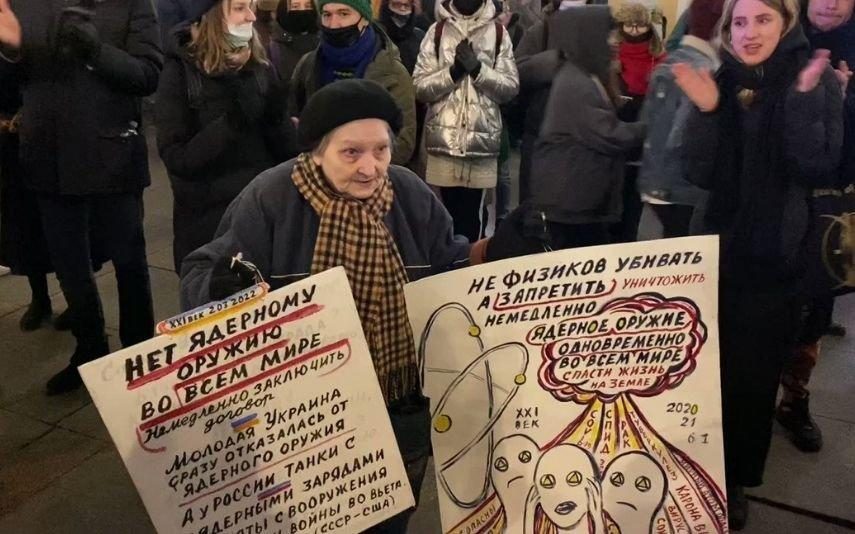 XXI ВЕК 2.03 2022
НЕТ ЯДЕРНОМУ
ОРУЖИЮ
ВО ВСЕМ МИРЕ
НЕМЕДЛЕННО ЗАКЛЮЧИТЬ
ДОГОВОР
МОЛОДАЯ УКРАИНА
СРАЗУ ОТКАЗАЛАСЬ ОТ
ЯДЕРНОГО ОРУЖИЯ
А У РОССИИ ТАНКИ С
ЯДЕРНЫМИ ЗАРЯДАМИ
С ВООРУЖЕНИЯ
ВОЙНЫ ВО ВЬЕТА.
(СССР-США)
НЕ ФИЗИКОВ УБИВАТЬ
А ЗАПРЕТИТЬ УНИЧТОЖИТЬ
НЕМЕДЛЕННО
ЯДЕРНОЕ ОРУЖИЕ
ОДНОВРЕМЕННО
ВО ВСЕМ МИРЕ
СПАСТИ ЖИЗНЬ
НА ЗЕМЛЕ
XXI
ВЕК
2020
21
СПИД
СТРАХ
КАРОНА
ВИРУС